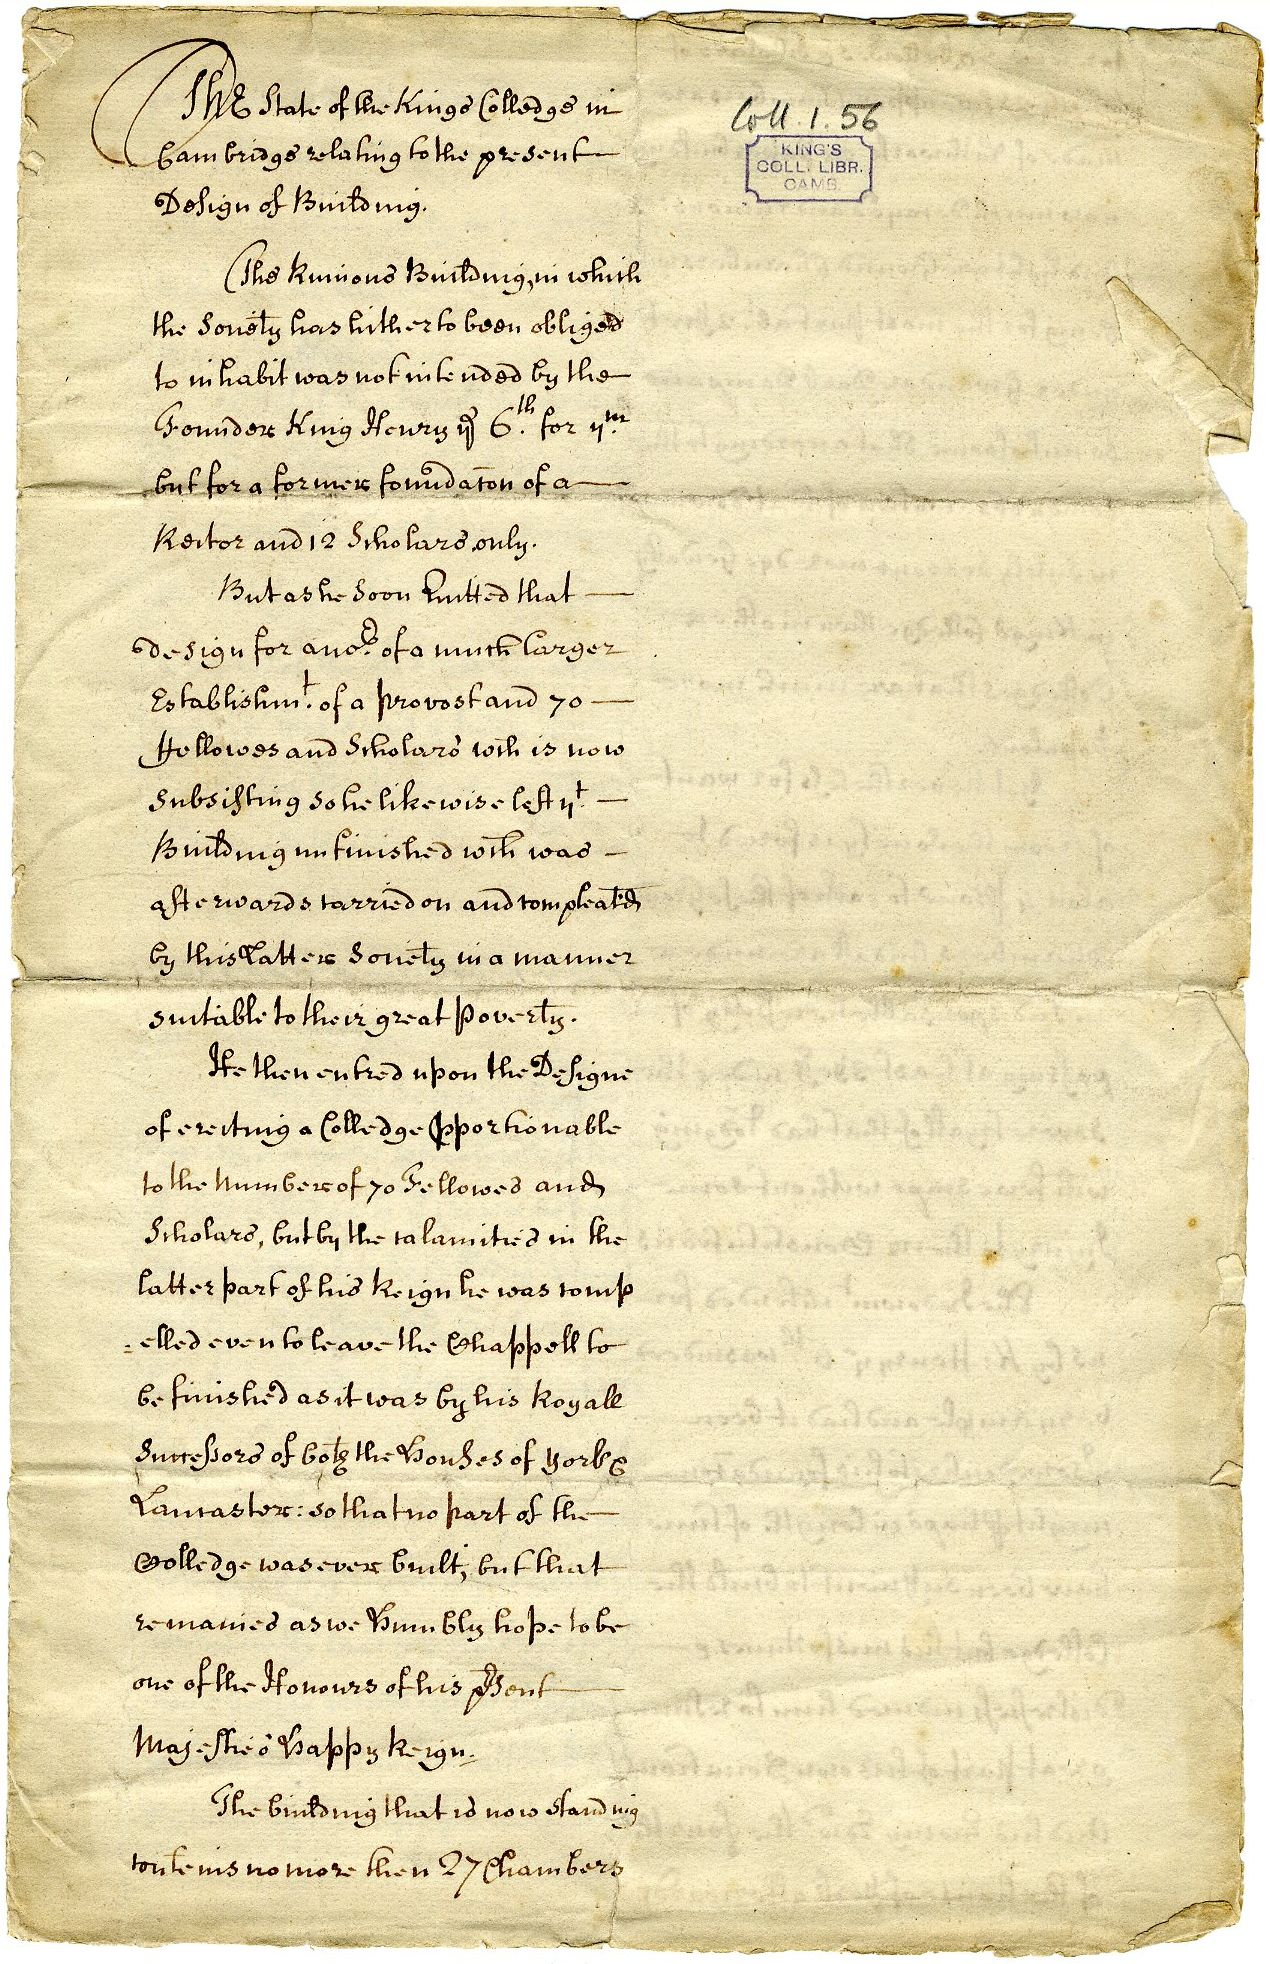 The State of the Kings Colledge in
Cambridge relating to the present
Design of Building.
Coll. 1. 56
KING'S
COLL. LIBR.
CAMB.
The Ruinous Building, in which
the Society has hitherto been obliged
to inhabit was not intended by the
Founder King Henry yͤ 6.th for yᵐ.
but for a former foundacōn of a
Rector and 12 Scholars only.
But as he soon Quitted that
design for anoʳ. of a much larger
Establishmᵗ. of a provost and 70
ffellowes and Scholars wch is now
subsisting so he likewise left yᵗ.
Building unfinished wch was
afterwards carried on and compleated
by this Latter Society in a manner
suitable to their great Poverty.
He then entred upon the Designe
of erecting a Colledge pportionable
to the Number of 70 Fellowes and
Scholars, but by the calamities in the
latter part of his Reign he was comp
=elled even to leave the Chappell to
be finished as it was by his Royall
Successors of both the Houses of York &
Lancaster: so that no part of the
Colledge was ever built, but that
remaines as we Humbly hope to be
one of the Honours of his pʳsent
Majesties Happy Reign.
The building that is now standing
conteins no more then 27 Chambers